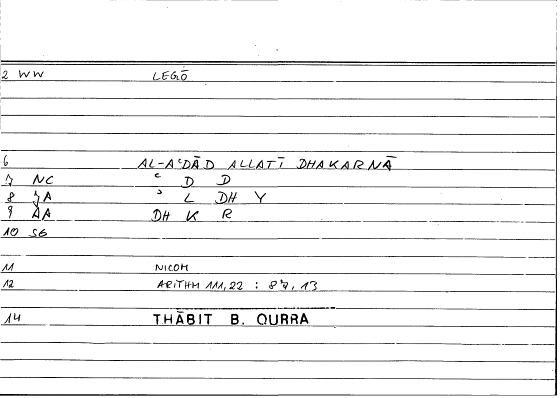 2 WW LEGŌ
6 AL-AʿDĀD ALLATĪ DHAKARNĀ
7 NC ʿ D D
8 JA ʾ L DH Y
9 AA DH K R
10 SG
11 NICOM
12 ARITHM 111,22 : 87,13
14 THĀBIT B. QURRA